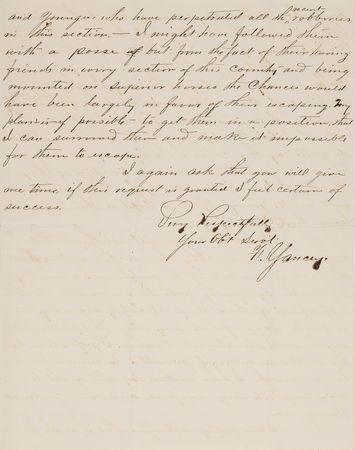 recent
and Youngers who have perpetrated all the robberies
in this section,— I might have followed them
with a posse but from the fact of their having
friends in every section of this county and being
mounted on superior horses the Chances would
have been largely in favor of their escaping. My
plan is if possible — to get them in a position, that
I can surround them and make it impossible
for them to escape.
I again ask that you will give
me time, if this request is granted I feel certain of
success.
Very Respectfully
Your Obt Servt
Yancey.